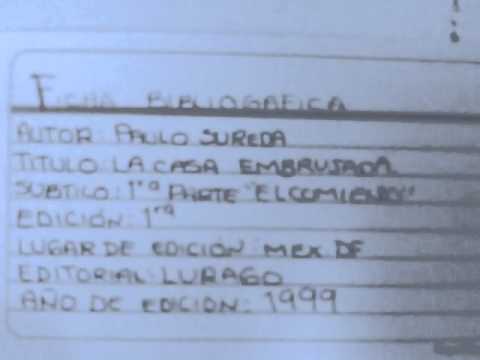 FICHA BIBLIOGRAFICA
AUTOR: PAULO SUREDA
TITULO: LA CASA EMBRUSADA
SUBTILO: 1ra PARTE "EL COMIENZO"
EDICIÓN: 1ra
LUGAR DE EDICIÓN: MEX DF
EDITORIAL: LURAGO
AÑO DE EDICIÓN: 1999